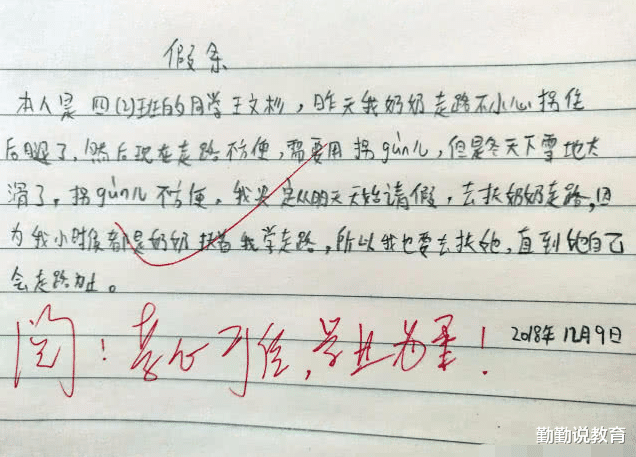 假条
本人是四(2)班的同学王文杉，昨天我奶奶走路不小心拐住
后腿了，然后现在走路不方便，需要用拐gùn儿，但是冬天下雪地太
滑了，拐gùn儿不方便，我决定从明天开始请假，去扶奶奶走路，因
为我小时候都是奶奶扶着我学走路，所以我也要去扶她，直到她自己
会走路为止。
2018年12月9日
阅！孝心可信，学业为重！
勤勤说教育